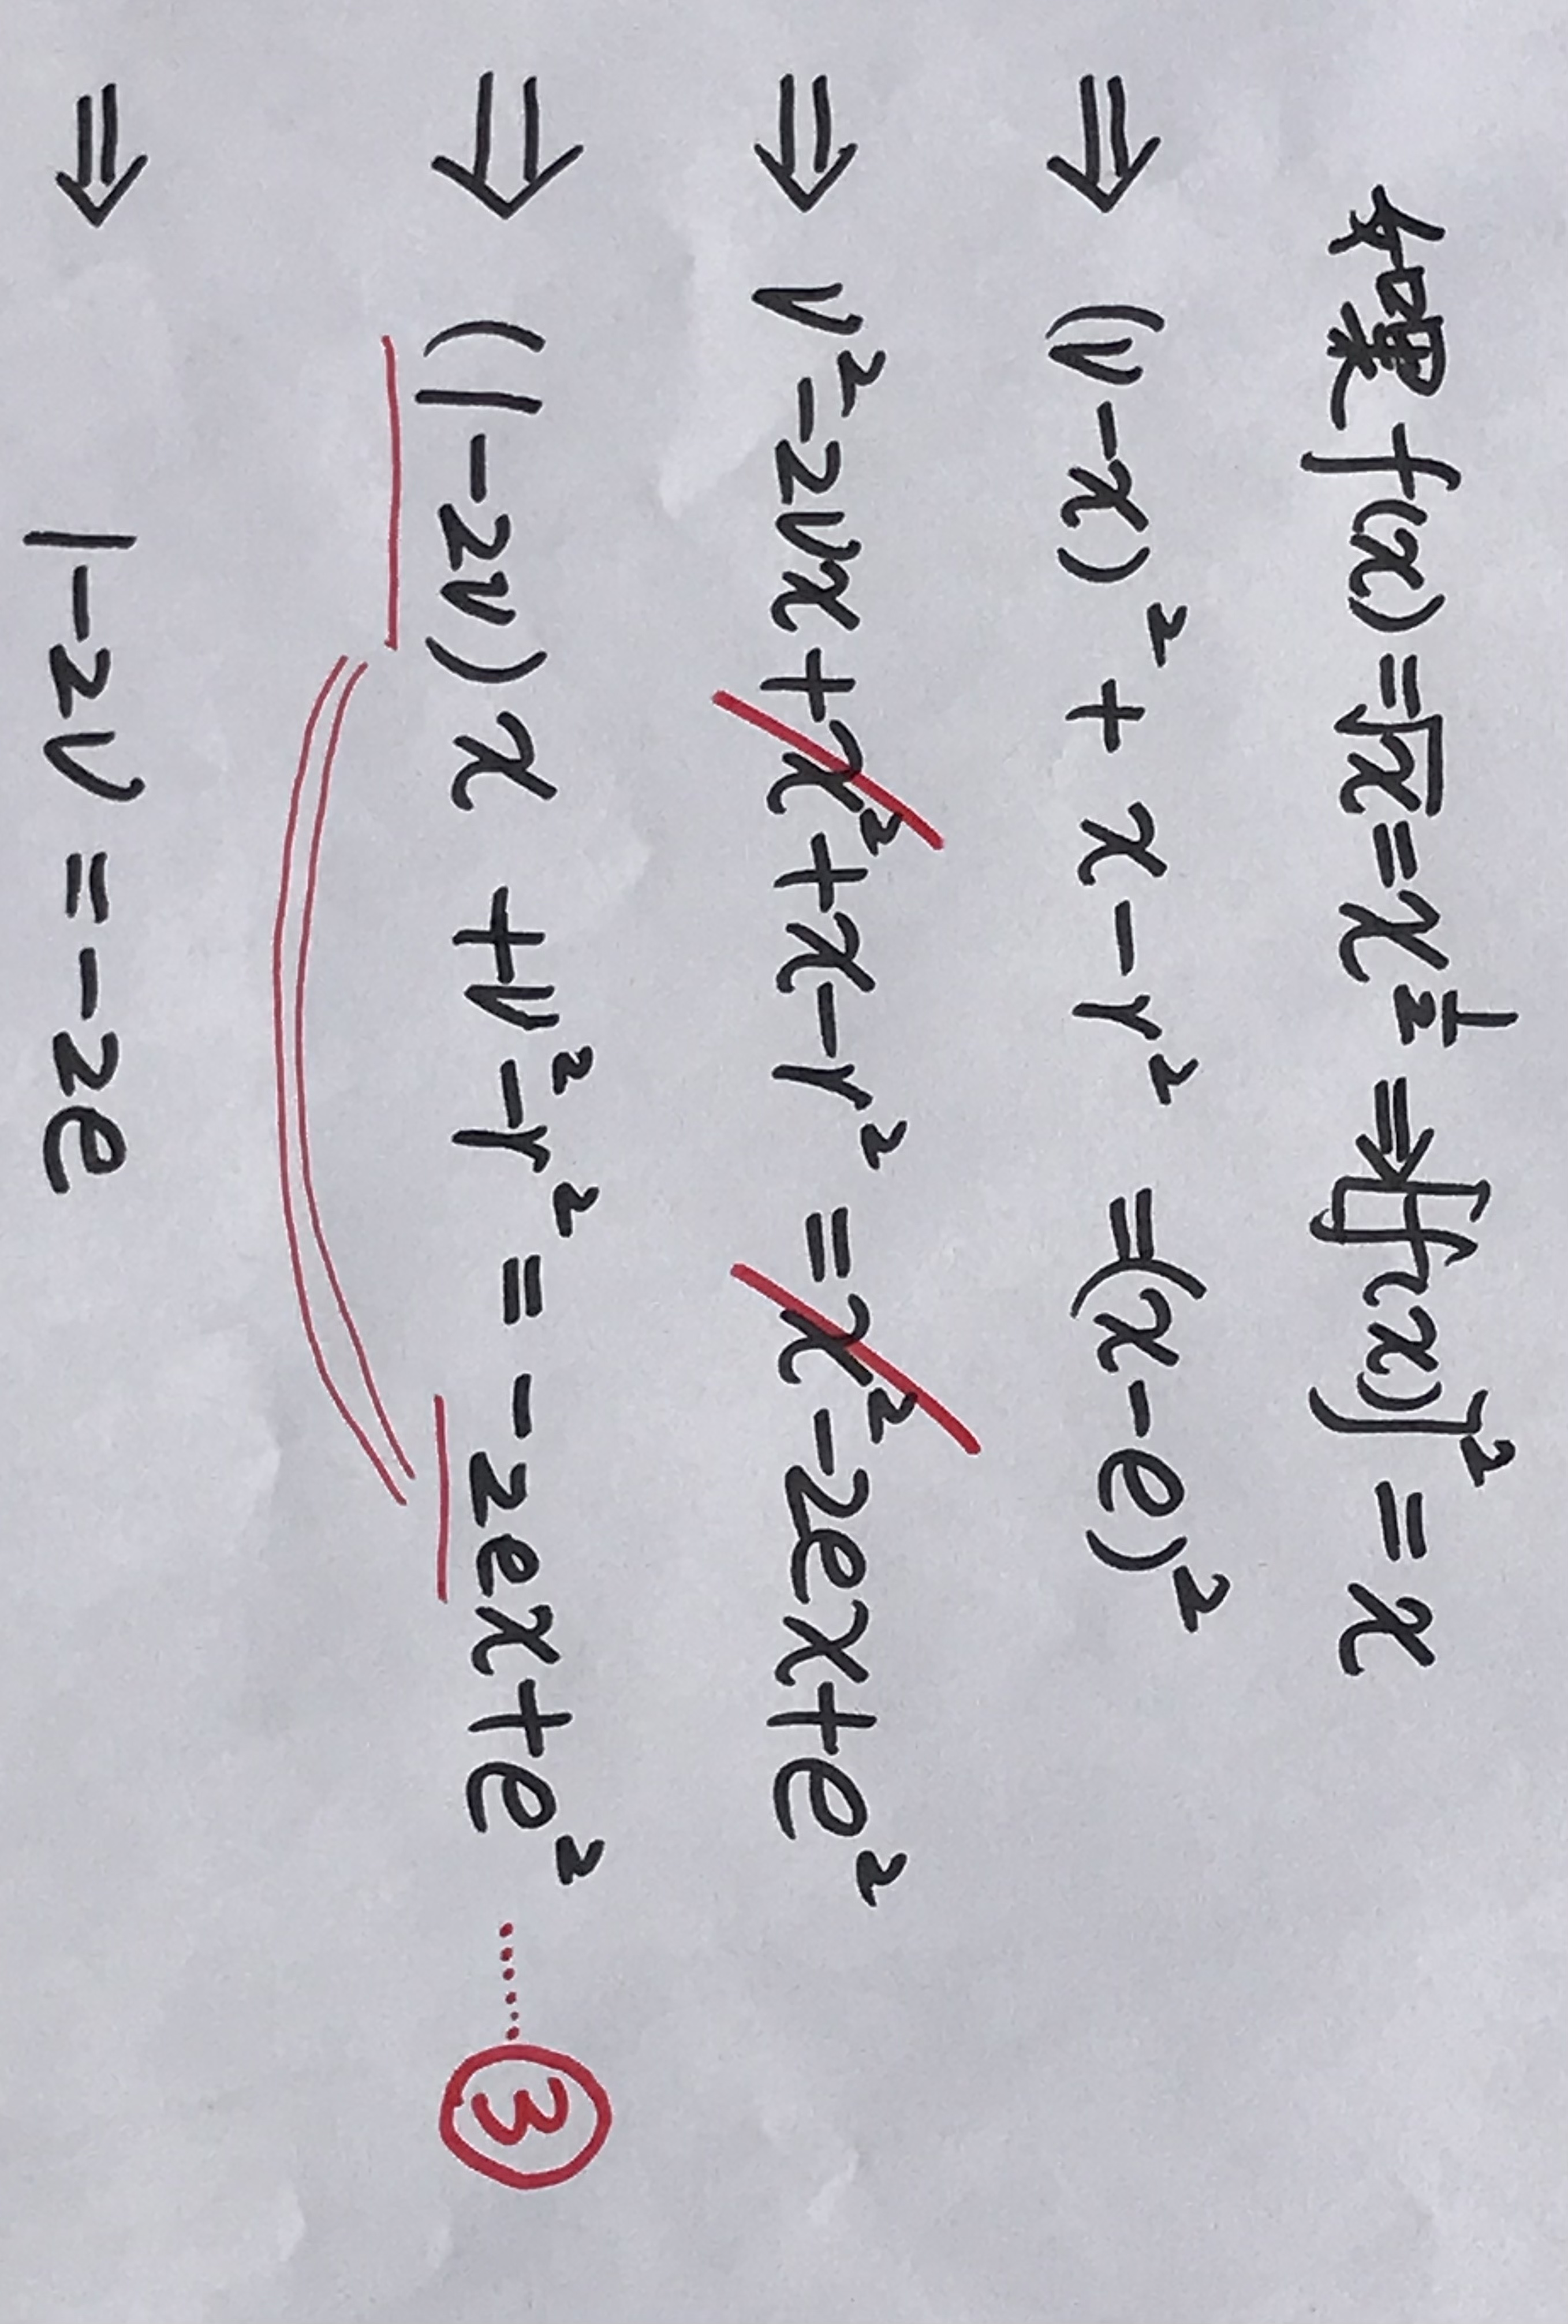 如果 f(x)=√x=x^{1/2} ⇒[f(x)]²=x
⇒ (ν-x)²+x-r²=(x-e)²
⇒ ν²-2νx+x²+x-r²=x²-2ex+e²
⇒ (1-2ν)x+ν²-r²=-2ex+e² ……③
⇒ 1-2ν=-2e